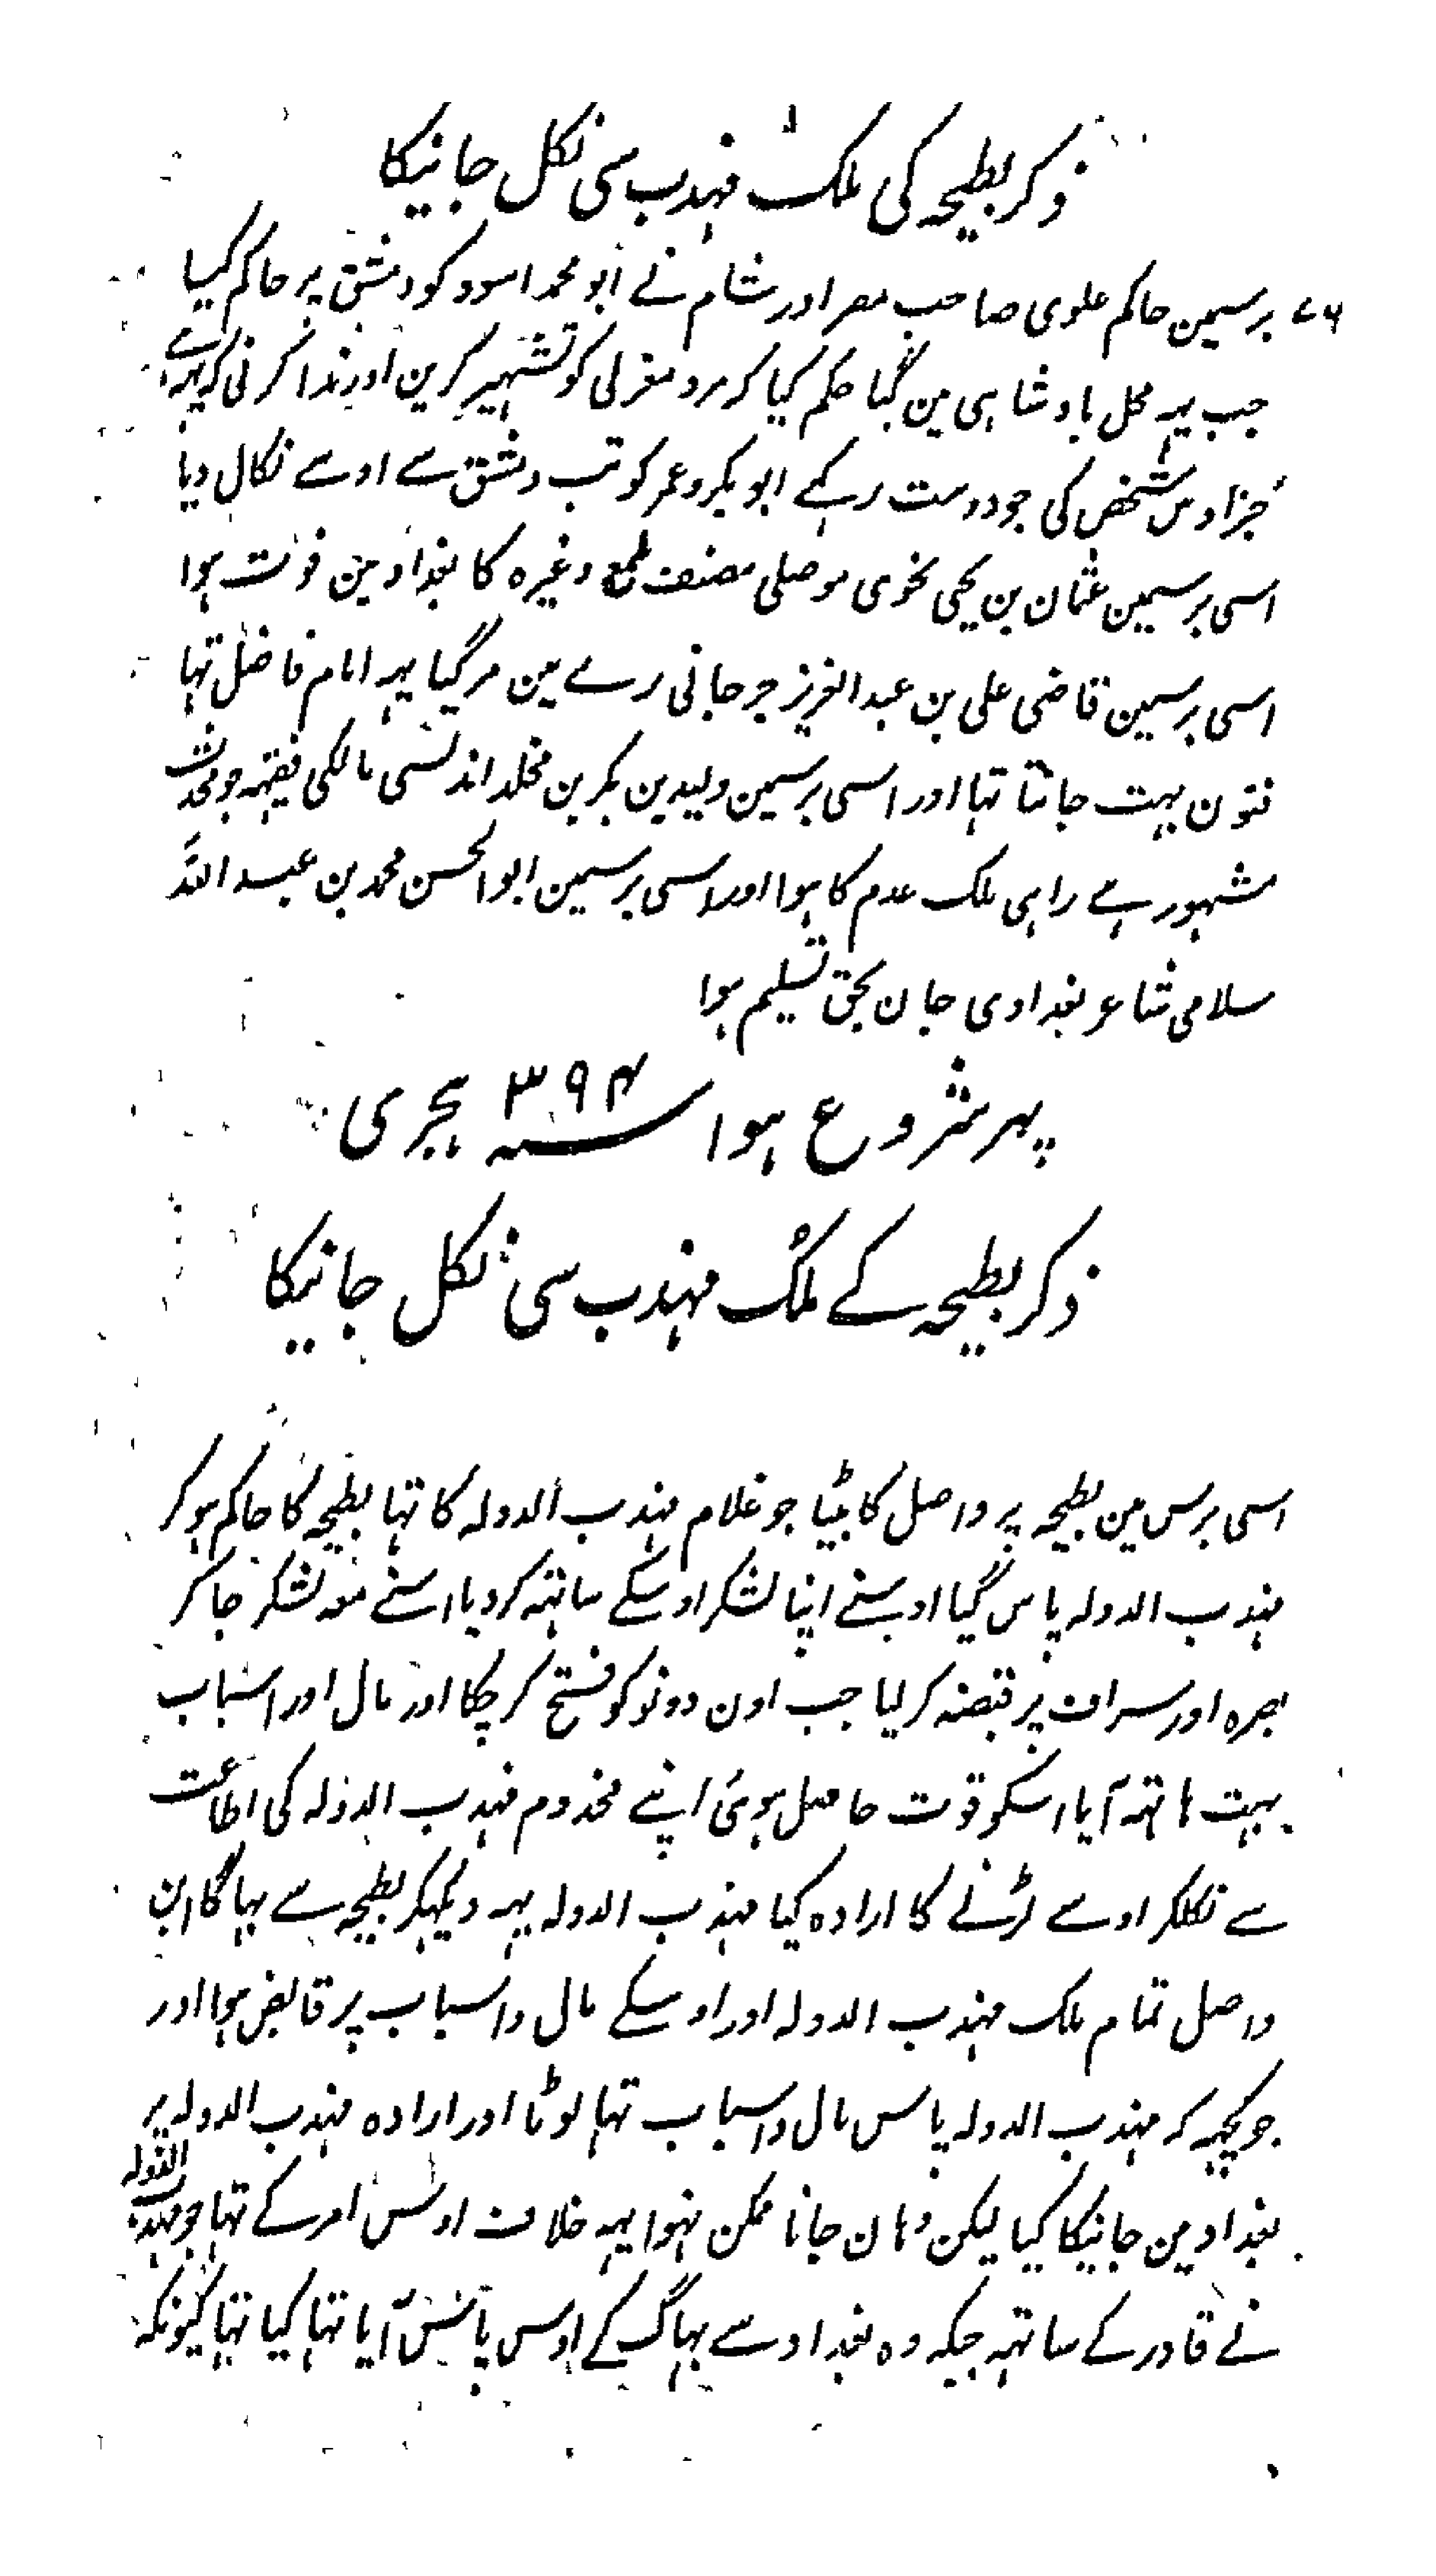 ذکر بطیحہ کی ملک مہذب سی نکل جانیکا
۷۶ برسیمن حاکم علوی صاحب مصر اور شام نے ابو محمد اسود کو دمشق پر حاکم کیا
جب یہہ محل بادشاہی مین گیا حکم کیا کہ مرد مغربی کو تشہیر کرین اور ندا کرنی کہ یہہ ہے
جزا اوس شخص کی جو دوست رکہے ابو بکر و عمر کو تب دمشق سے اوسے نکال دیا
اسی برسیمین عثمان بن یحی نحوی موصلی مصنف لمع وغیرہ کا بغداد مین فوت ہوا
اسی برسیمین قاضی علی بن عبد العزیز جرجانی رے مین مرگیا یہہ امام فاضل تہا
فنون بہت جانتا تہا اور اسی برسیمین ولید بن بکر بن مخلد اندلسی مالکی فقیہہ جو محدث
مشہور ہے راہی ملک عدم کا ہوا اور اسی برسیمین ابو الحسن محمد بن عبد اللہ
سلامی شاعر بغدادی جان بحق تسلیم ہوا
پہر شروع ہوا سنہ ۳۹۴ ہجری
ذکر بطیحہ کے ملک مہذب سی نکل جانیکا
اسی برس مین بطیحہ پر واصل کا بیٹا جو غلام مہذب الدولہ کا تہا بطیحہ کا حاکم ہو کر
مہذب الدولہ پاس گیا اوسنے اپنا لشکر اوسکے ساتہہ کر دیا اسنے معہ لشکر جا کر
بصرہ اور سراف پر قبضہ کر لیا جب اون دونو کو فتح کر چکا اور مال اور اسباب
بہت ہاتہہ آیا اسکو قوت حاصل ہوئی اپنے مخدوم مہذب الدولہ کی اطاعت
سے نکلکر اوسے لڑنے کا ارادہ کیا مہذب الدولہ یہہ دیکہکر بطیحہ سے بہاگا ابن
واصل تمام ملک مہذب الدولہ اور اوسکے مال و اسباب پر قابض ہوا اور
جو کچہہ کہ مہذب الدولہ پاس مال و اسباب تہا لوٹا اور ارادہ مہذب الدولہ پر
بغداد مین جانیکا کیا لیکن وہان جانا ممکن نہوا یہہ خلاف اوس امر کے تہا جو مہذب الدولہ
نے قادر کے ساتہہ جبکہ وہ بغداد سے بہاگ کے اوس پاس آیا تہا کیا تہا کیونکہ